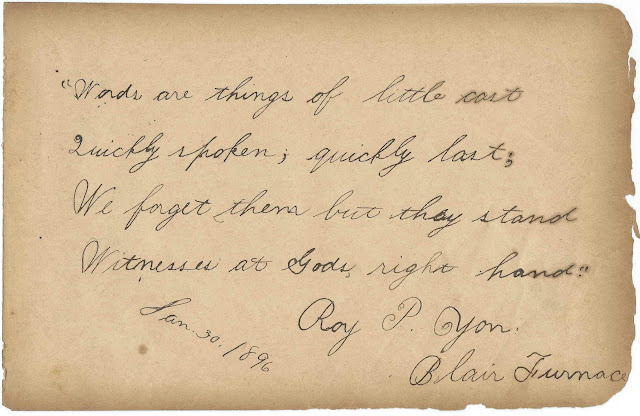 "Words are things of little cost
Quickly spoken; quickly last;
We forget them but they stand
Witnesses at Gods, right hand."
Jan. 30. 1896
Roy P. Yon.
Blair Furnace